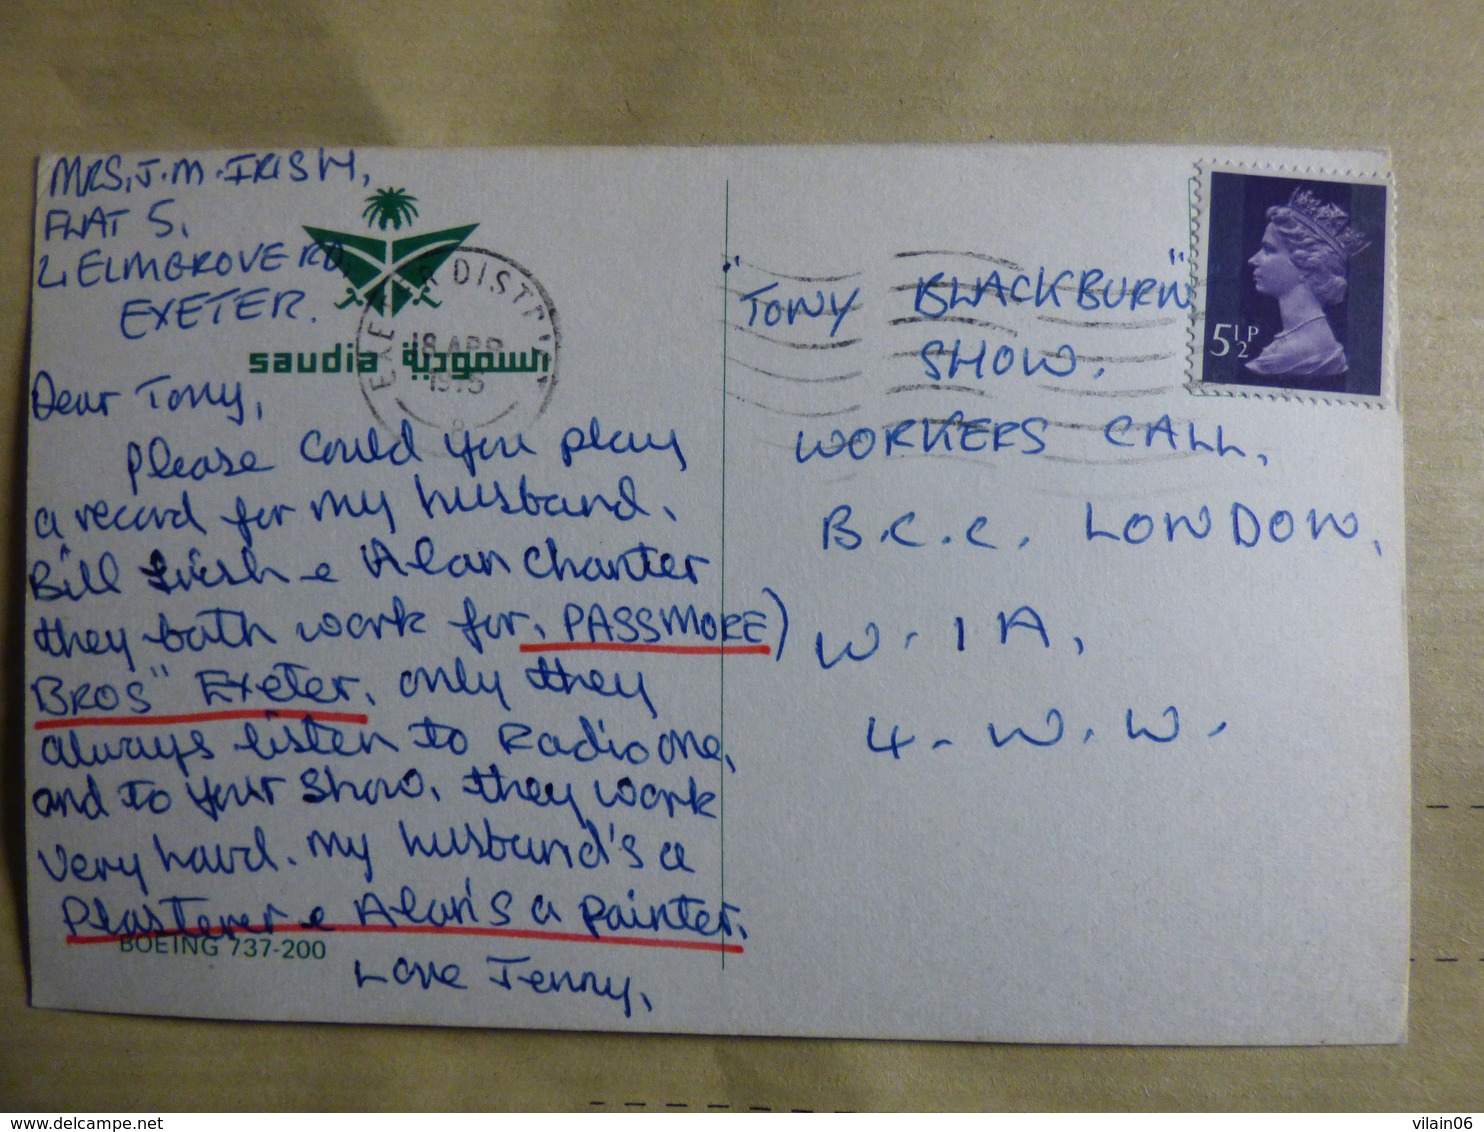 MRS. J. M. IRISH,
FLAT 5,
2, ELMGROVE RD,
EXETER.
saudia السعودية
EXETER DISTRICT
18 APR
1975
Dear Tony,
Please could you play
a record for my husband.
Bill Irish & Alan Charter
they both work for, PASSMORE)
BROS" Exeter, only they
always listen to Radio one,
and to your show, they work
very hard. my husband's a
Plasterer & Alan's a painter.
BOEING 737-200
Love Jenny,
"TONY BLACKBURN"
SHOW.
WORKERS CALL,
B.C.C. LONDON,
W.1A,
4.W.W.
5½P
delcampe.net
vilain06